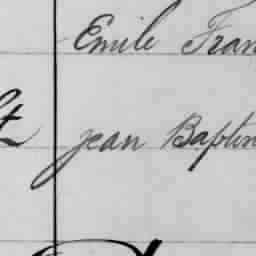 Emile Fran
Jean Baptin